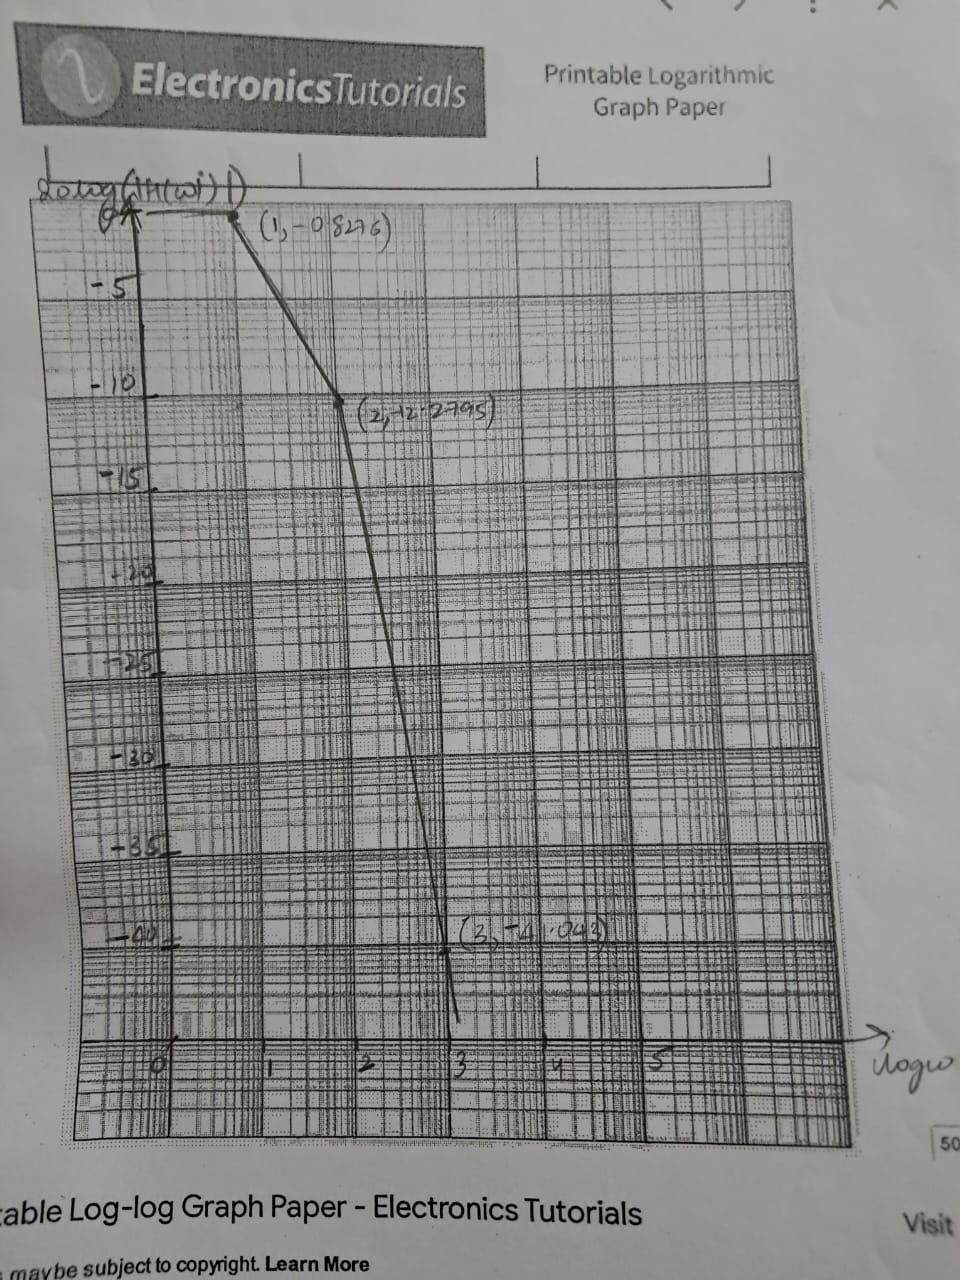 ElectronicsTutorials
Printable Logarithmic
Graph Paper
20log(|H(wj)|)
0
(1,-0.8276)
-5
-10
(2,-12.2795)
-15
-20
-25
-30
-35
-40
(3,-41.043)
0 1 2 3 4 5
logw
50
table Log-log Graph Paper - Electronics Tutorials
Visit
may be subject to copyright. Learn More